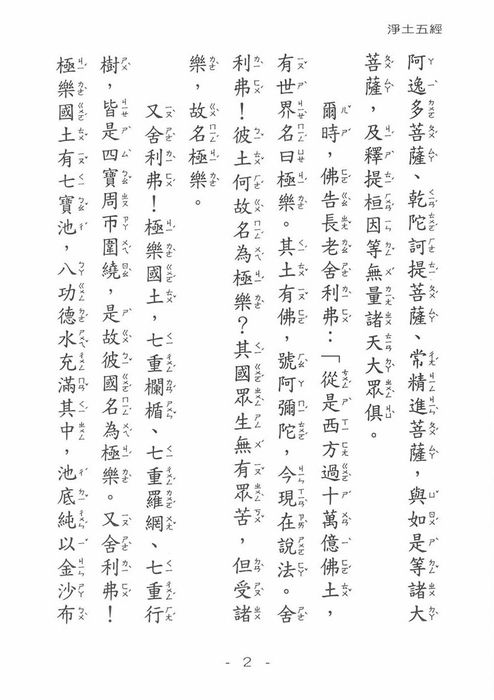 淨土五經
阿逸多菩薩、乾陀訶提菩薩、常精進菩薩，與如是等諸大
菩薩，及釋提桓因等無量諸天大眾俱。
爾時，佛告長老舍利弗：「從是西方過十萬億佛土，
有世界名曰極樂。其土有佛，號阿彌陀，今現在說法。舍
利弗！彼土何故名為極樂？其國眾生無有眾苦，但受諸
樂，故名極樂。
又舍利弗！極樂國土，七重欄楯、七重羅網、七重行
樹，皆是四寶周帀圍繞，是故彼國名為極樂。又舍利弗！
極樂國土有七寶池，八功德水充滿其中，池底純以金沙布
- 2 -